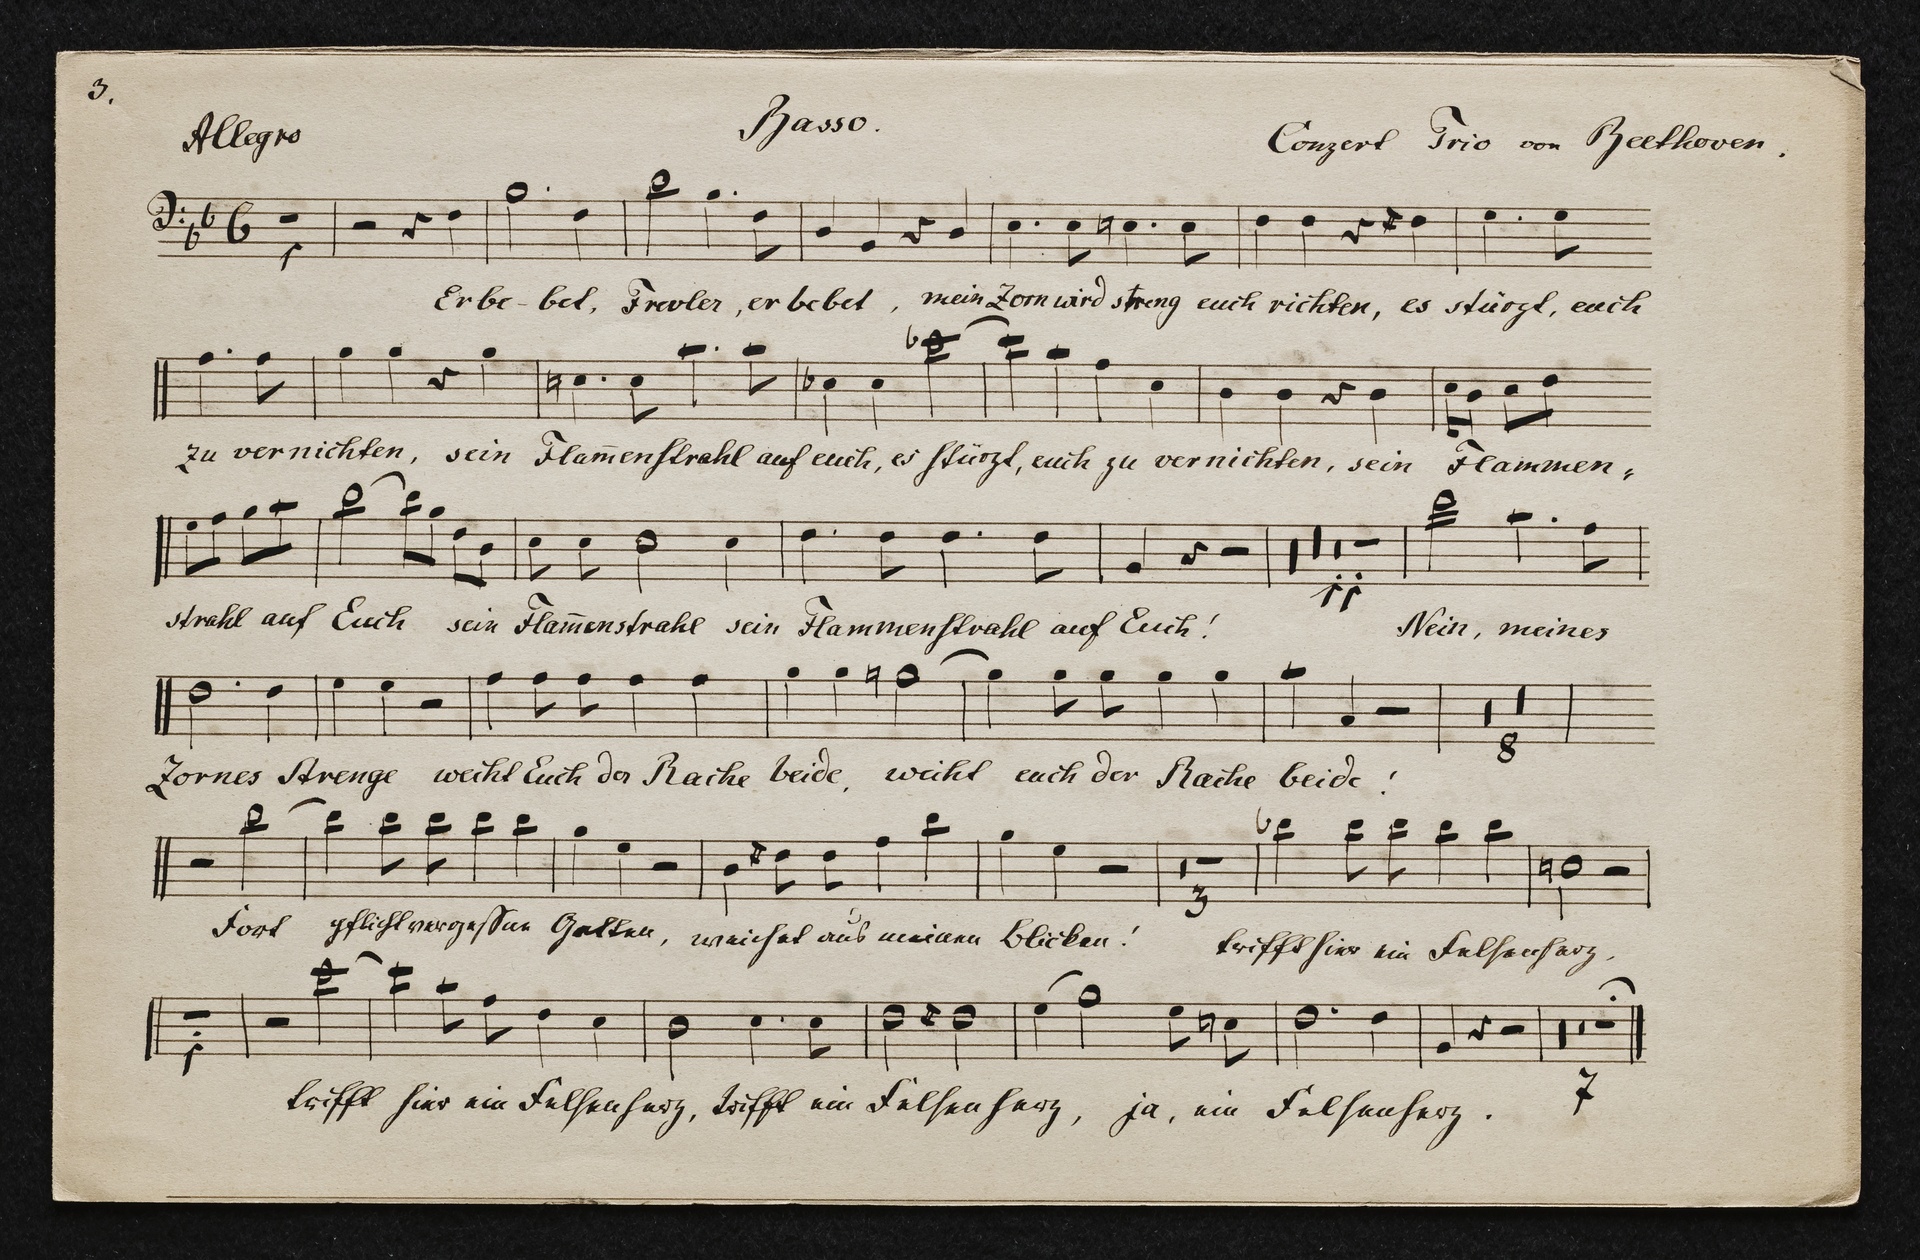 3.
Allegro Basso. Conzert Trio von Beethoven.
Erbe-bet, Frevler, er bebet, mein Zorn wird streng euch richten, es stürzt, euch
zu vernichten, sein Flam̅enstrahl auf euch, es stürzt, euch zu vernichten, sein Flammen-
11
strahl auf Euch sein Flam̅enstrahl sein Flammenstrahl auf Euch! Nein, meines
8
Zornes Strenge weiht Euch der Rache beide, weiht euch der Rache beide!
3
Fort pflichtvergeßne Gatten, weichet aus meinen Blicken! trifft hier ein Felsenherz,
1 7
trifft hier ein Felsenherz, trifft ein Felsenherz, ja, ein Felsenherz.